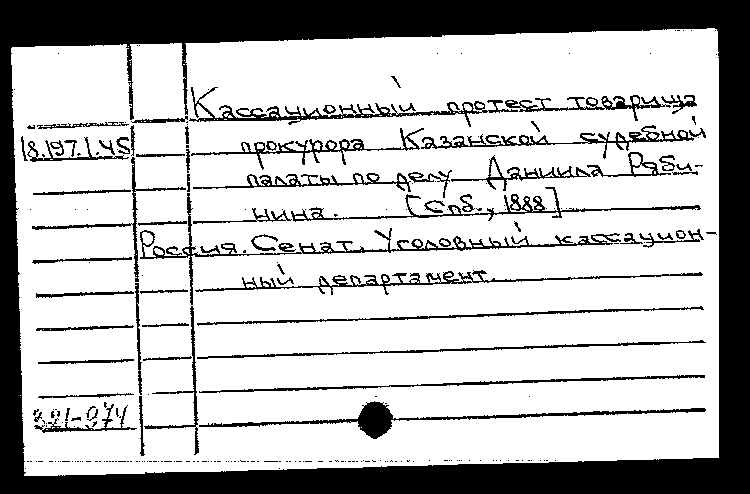 Кассационный протест товарища
18.197.1.45 прокурора Казанской судебной
палаты по делу Даниила Ряби-
нина. [Спб., 1888]
Россия. Сенат. Уголовный кассацион-
ный департамент.
321-974